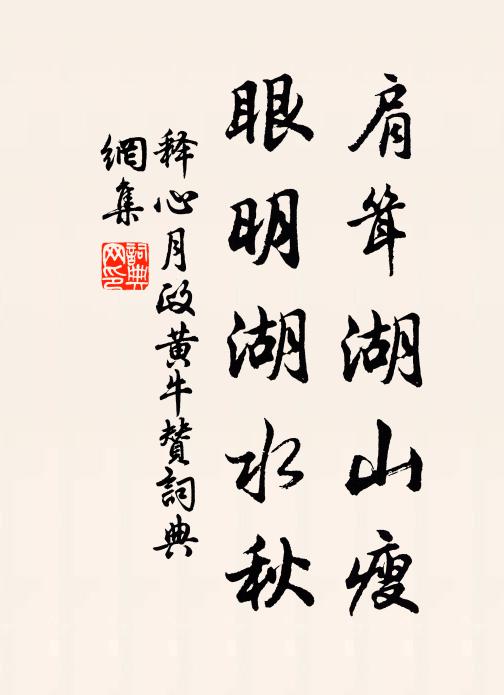 肩耸湖山瘦
眼明湖水秋
释心月政黄牛赞詞典
網集
詞典網印